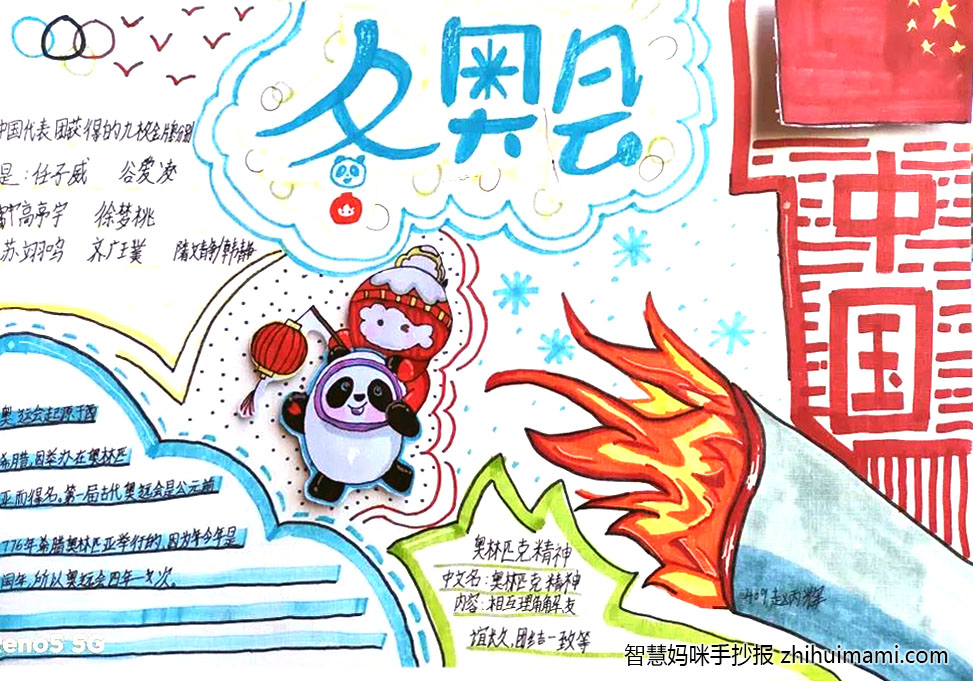 冬奥会
中国代表团获得的九枚金牌分别
是:任子威 谷爱凌
高亭宇 徐梦桃
苏翊鸣 齐广璞 隋文静/韩静
中
国
奥运会起源于
希腊,因举办在奥林匹
亚而得名。第一届古代奥运会是公元前
776年希腊奥林匹亚举行的,因为
所以奥运会四年一次。
奥林匹克精神
中文名:奥林匹克精神
内容:相互理解友
谊长久,团结一致等
409
eno5 5G
智慧妈咪手抄报 zhihuimami.com